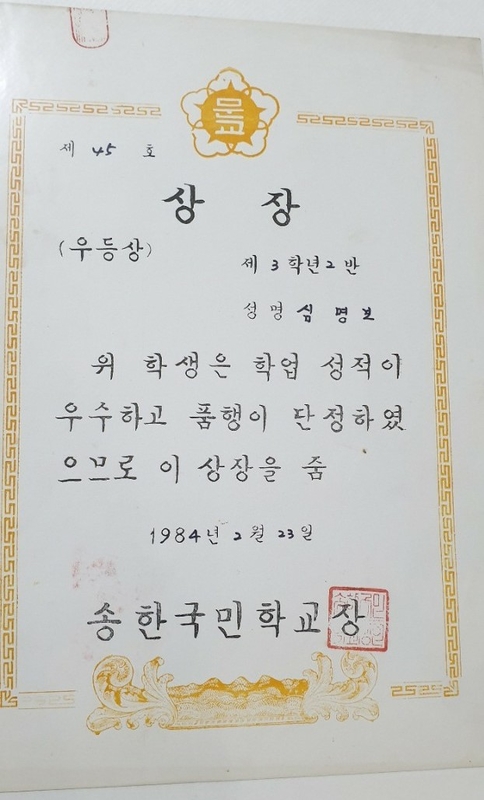 문교
제 45 호
상 장
(우등상)
제 3 학년 2 반
성명 심명보
위 학생은 학업 성적이
우수하고 품행이 단정하였
으므로 이 상장을 줌
1984년 2월 23일
송한국민학교장